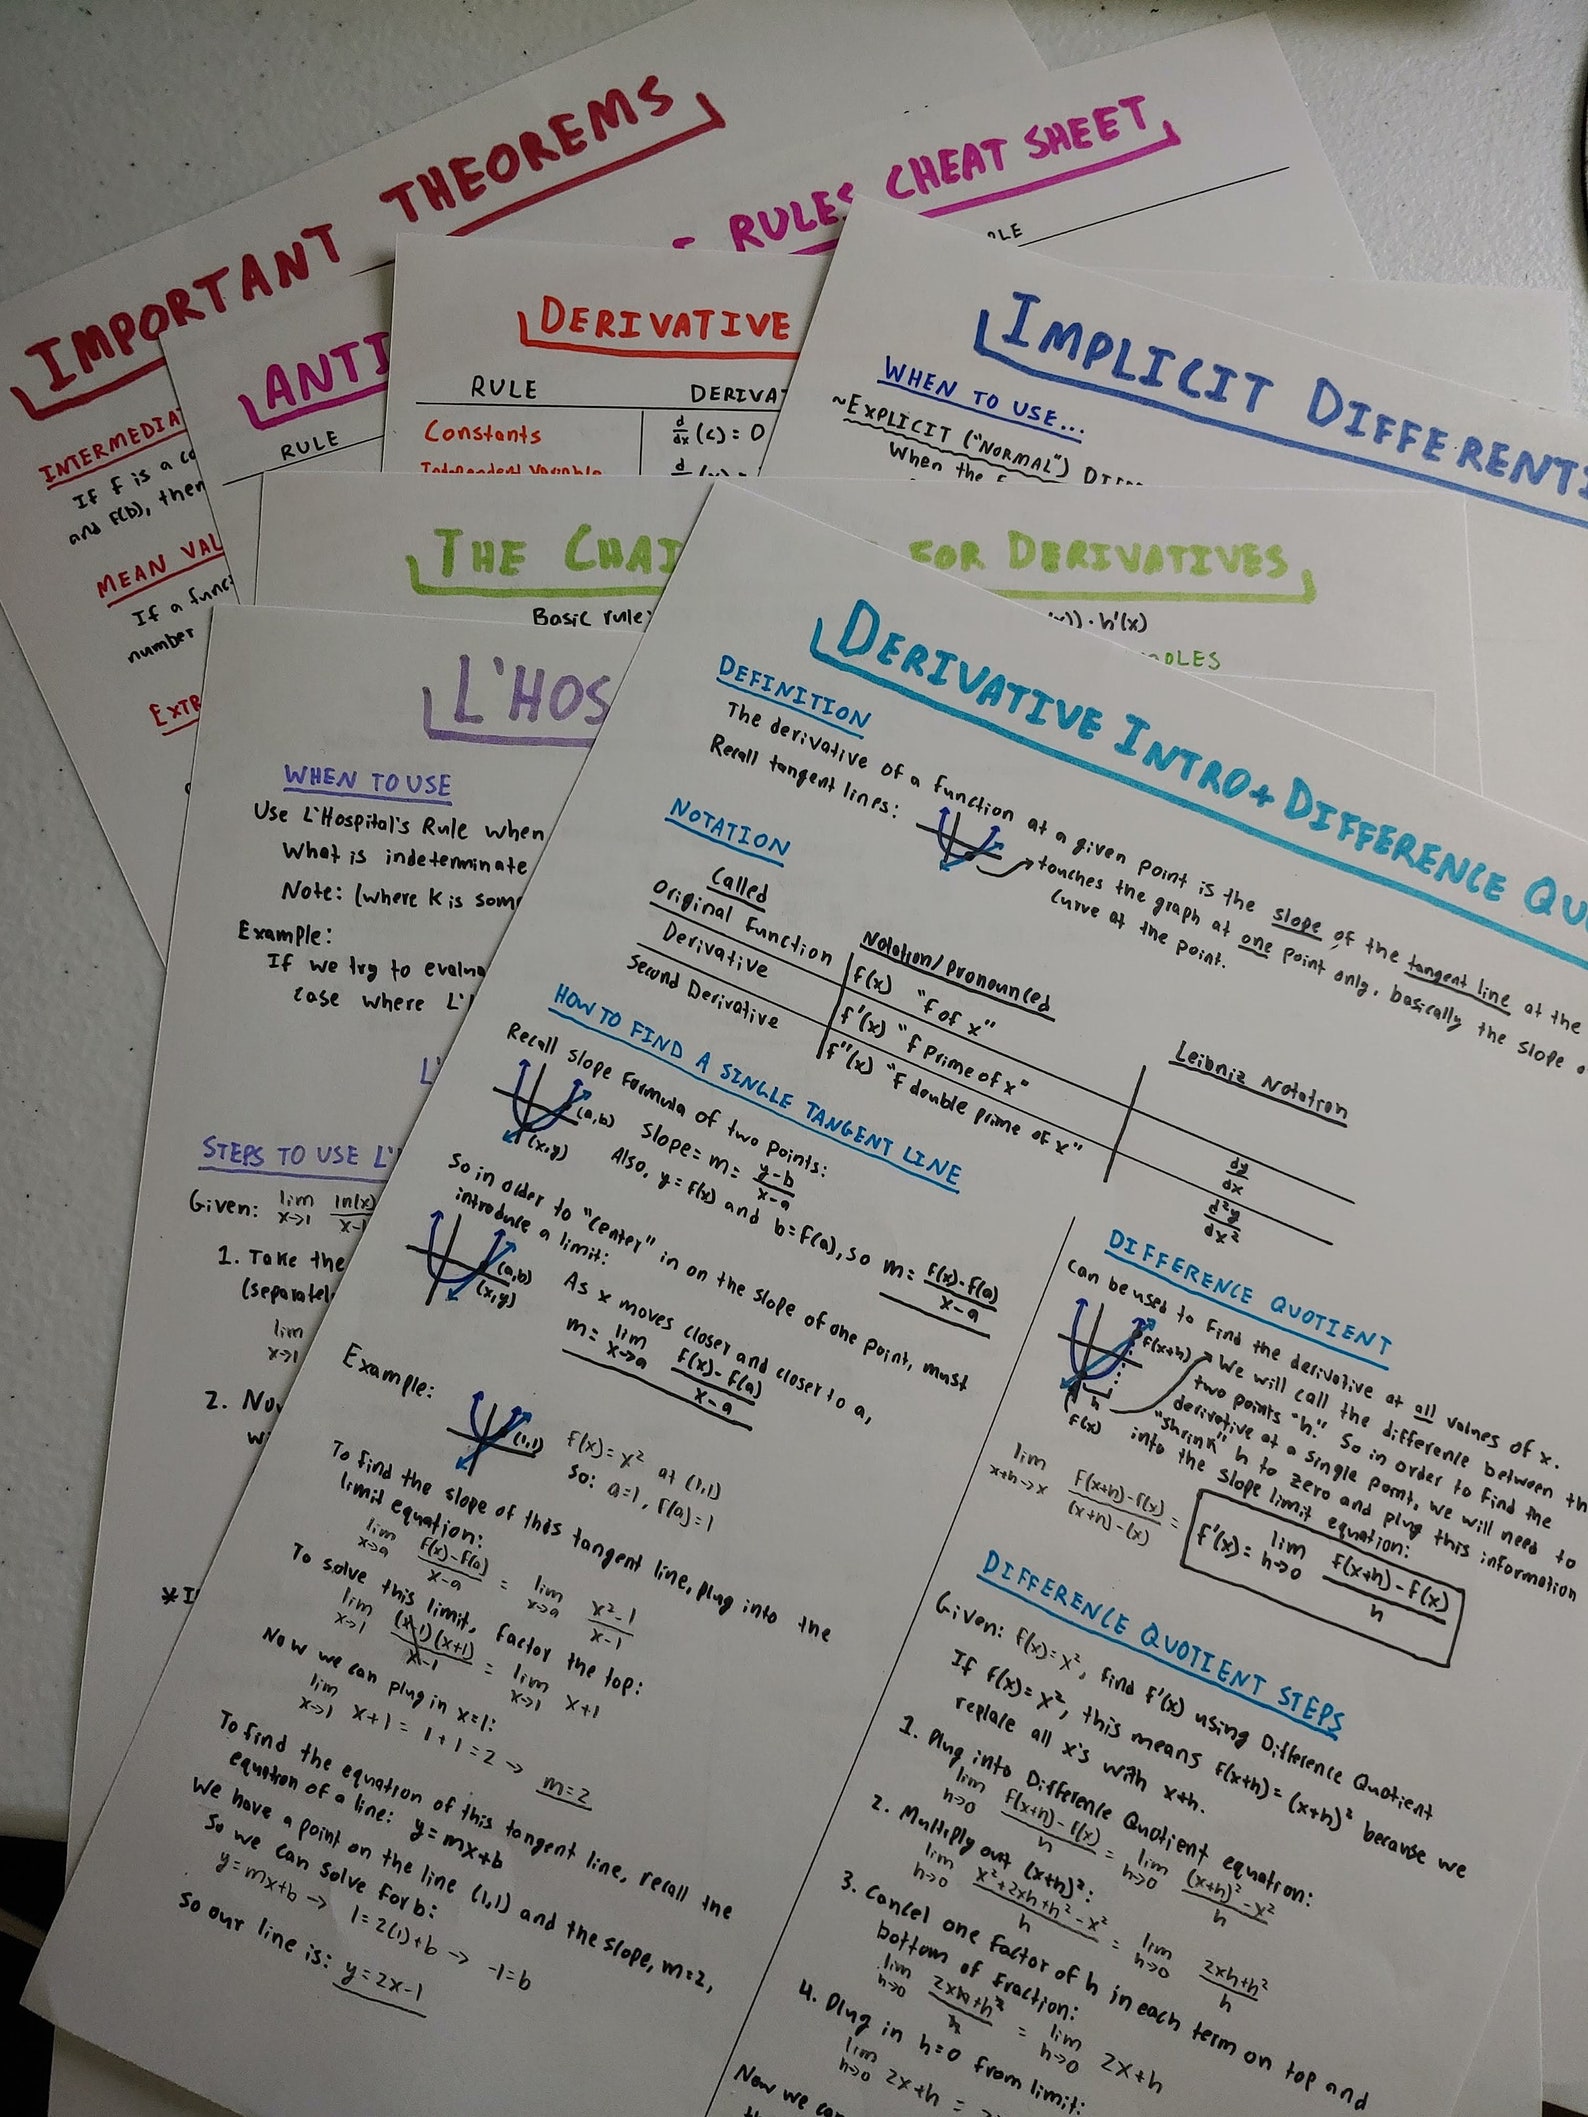 IMPORTANT THEOREMS
INTERMEDIA
If f is a co
and f(b), then
MEAN VAL
If a func
number
EXTR
RULES CHEAT SHEET
ANTI
RULE
DERIVATIVE
RULE DERIVAT
Constants d/dx (c) = 0
Independent Variable
IMPLICIT DIFFERENTI
WHEN TO USE...
~EXPLICIT ("NORMAL") DIFF
When the f
THE CHAI FOR DERIVATIVES
Basic rule: (x)) · h'(x)
L'HOS
WHEN TO USE
Use L'Hospital's Rule when
What is indeterminate
Note: (where K is some
Example:
If we try to evalua
case where L'
L'
STEPS TO USE L'
Given: lim x→1 ln(x)/x-1
1. Take the
(separatel
lim x→1
2. Now
wi
*I
DERIVATIVE INTRO + DIFFERENCE QU
DEFINITION
The derivative of a function at a given point is the slope of the tangent line at the
Recall tangent lines:
touches the graph at one point only, basically the slope o
curve at the point.
NOTATION
Called Notation/Pronounced Leibniz Notation
Original Function f(x) "f of x"
Derivative f'(x) "f prime of x" dy/dx
Second Derivative f''(x) "f double prime of x" d²y/dx²
HOW TO FIND A SINGLE TANGENT LINE
Recall slope formula of two points:
(a,b)
(x,y)
slope = m = y-b/x-a
Also, y = f(x) and b = f(a), so m = f(x)-f(a)/x-a
So in order to "center" in on the slope of one point, must
introduce a limit:
(a,b)
(x,y)
As x moves closer and closer to a,
m = lim x→a f(x)-f(a)/x-a
Example:
(1,1)
f(x) = x² at (1,1)
so: a=1, f(a)=1
To find the slope of this tangent line, plug into the
limit equation:
lim x→a f(x)-f(a)/x-a = lim x→a x²-1/x-1
To solve this limit, factor the top:
lim x→1 (x-1)(x+1)/x-1 = lim x→1 x+1
Now we can plug in x=1:
lim x→1 x+1 = 1+1 = 2 → m=2
To find the equation of this tangent line, recall the
equation of a line: y=mx+b
We have a point on the line (1,1) and the slope, m=2,
so we can solve for b:
y=mx+b → 1=2(1)+b → -1=b
So our line is: y=2x-1
DIFFERENCE QUOTIENT
Can be used to find the derivative at all values of x.
f(x+h)
h
f(x)
We will call the difference between th
two points "h". So in order to find the
derivative at a single point, we will need to
"shrink" h to zero and plug this information
into the slope limit equation:
lim x+h→x f(x+h)-f(x)/(x+h)-(x) = f'(x) = lim h→0 f(x+h)-f(x)/h
DIFFERENCE QUOTIENT STEPS
Given: f(x)=x², find f'(x) using Difference Quotient
If f(x)=x², this means f(x+h)=(x+h)² because we
replace all x's with x+h.
1. Plug into Difference Quotient equation:
lim h→0 f(x+h)-f(x)/h = lim h→0 (x+h)²-x²/h
2. Multiply out (x+h)²:
lim h→0 x²+2xh+h²-x²/h = lim h→0 2xh+h²/h
3. Cancel one factor of h in each term on top and
bottom of fraction:
lim h→0 2xh+h²/h = lim h→0 2x+h
4. Plug in h=0 from limit:
lim h→0 2x+h =
Now we can